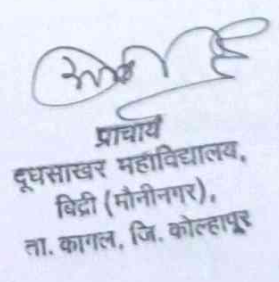 प्राचार्य
दूधसाखर महाविद्यालय,
बिद्री (मौनीनगर),
ता. कागल, जि. कोल्हापूर